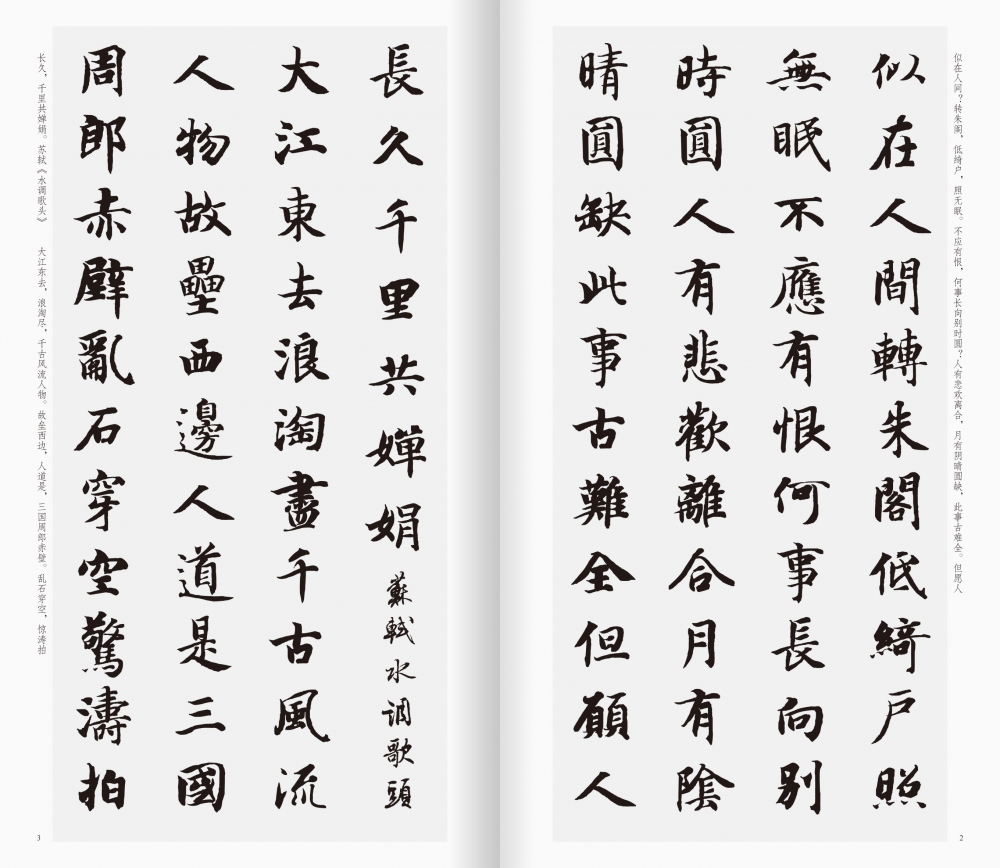 似在人间？转朱阁，低绮户，照无眠。不应有恨，何事长向别时圆？人有悲欢离合，月有阴晴圆缺，此事古难全。但愿人
似在人間轉朱閣低綺户照
無眠不應有恨何事長向别
時圓人有悲歡離合月有陰
晴圓缺此事古難全但願人
2
長久千里共嬋娟
蘇軾水調歌頭
大江東去浪淘盡千古風流
人物故壘西邊人道是三國
周郎赤壁亂石穿空驚濤拍
长久，千里共婵娟。苏轼《水调歌头》　大江东去，浪淘尽，千古风流人物。故垒西边，人道是，三国周郎赤壁。乱石穿空，惊涛拍
3